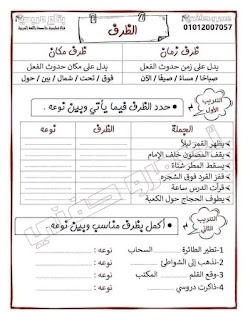 01012007057
الظرف
ظرف زمان
ظرف مكان
يدل على زمن حدوث الفعل
يدل على مكان حدوث الفعل
صباحًا / مساءً / صيفًا / الآن
فوق / تحت / شمال / بين / حول
التدريب الأول
حدد الظرف فيما يأتي وبين نوعه .
الجملة
الظرف
نوعه
يظهر القمر ليلاً
يقف المصلون خلف الإمام
يسقط المطر شتاءً
قفز القرد فوق الشجرة
قرأت الدرس ساعة
يطوف الحجاج حول الكعبة
التدريب الثاني
أكمل بظرف مناسب وبين نوعه .
1-تطير الطائرة ........ السحاب نوعه :
2-نذهب إلى الشواطئ ........ نوعه :
3-وقع القلم ........ المكتب نوعه :
4-ذاكرت دروسي ........ نوعه :